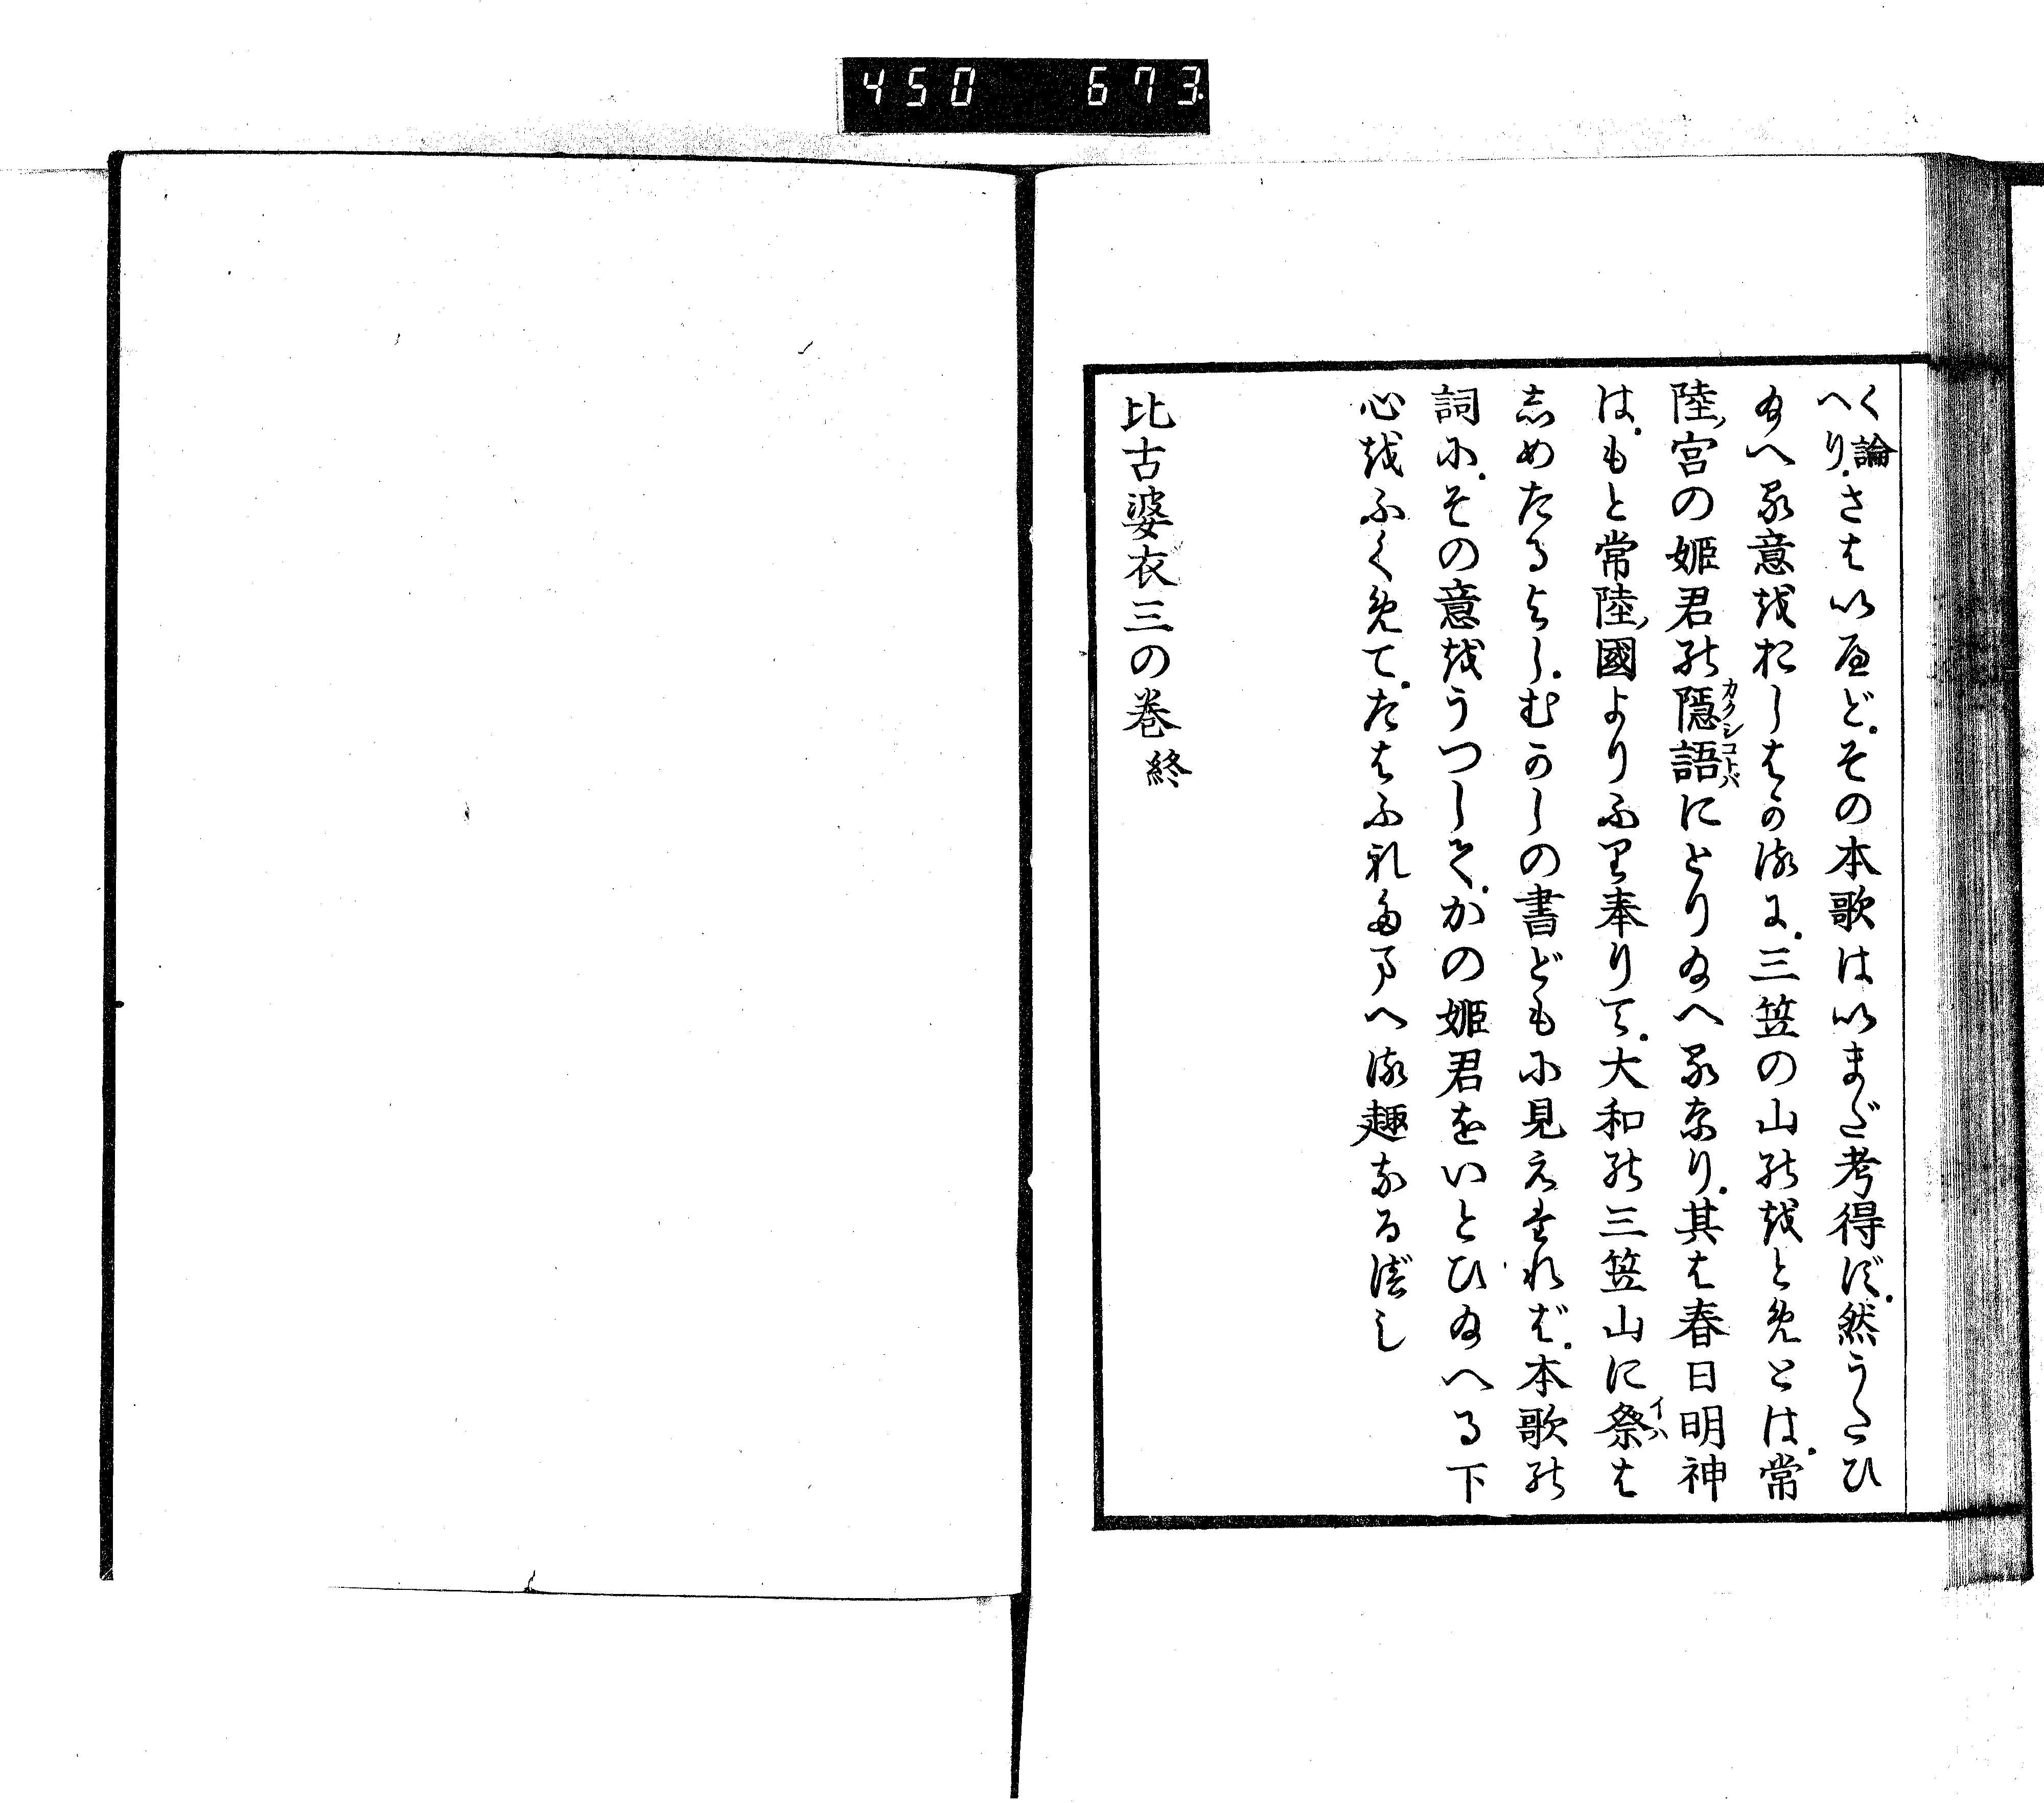 450 673
く論
へり。さはいへど。その本歌はいまだ考得ず。然うたひ
給へる意をおしはかるに。三笠の山のをとめとは。常
陸ノ宮の姫君の隠語カクシコトバにとり給へるなり。其は春日明神
は。もと常陸ノ國よりふり奉りて。大和の三笠山に祭イハは
しめたるよし。むかしの書どもに見えたれば。本歌の
詞に。その意をうつして。かの姫君をいとひ給へる下
心をふくめて。たはふれたまへる趣なるべし
比古婆衣三の巻 終